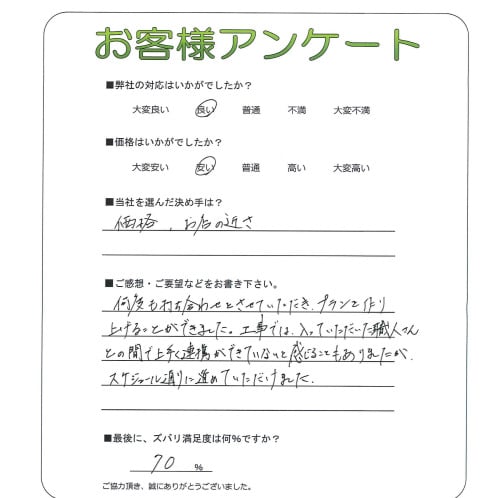 お客様アンケート
■弊社の対応はいかがでしたか？
大変良い 良い 普通 不満 大変不満
■価格はいかがでしたか？
大変安い 安い 普通 高い 大変高い
■当社を選んだ決め手は？
価格、お店の近さ
■ご感想・ご要望などをお書き下さい。
何度も打ち合わせをさせていただき、プランを作り
上げることができました。工事では、入っていただいた職人さん
との間で上手く連携ができていないと感じることもありましたが、
スケジュール通りに進めていただけました。
■最後に、ズバリ満足度は何％ですか？
70 %
ご協力頂き、誠にありがとうございました。